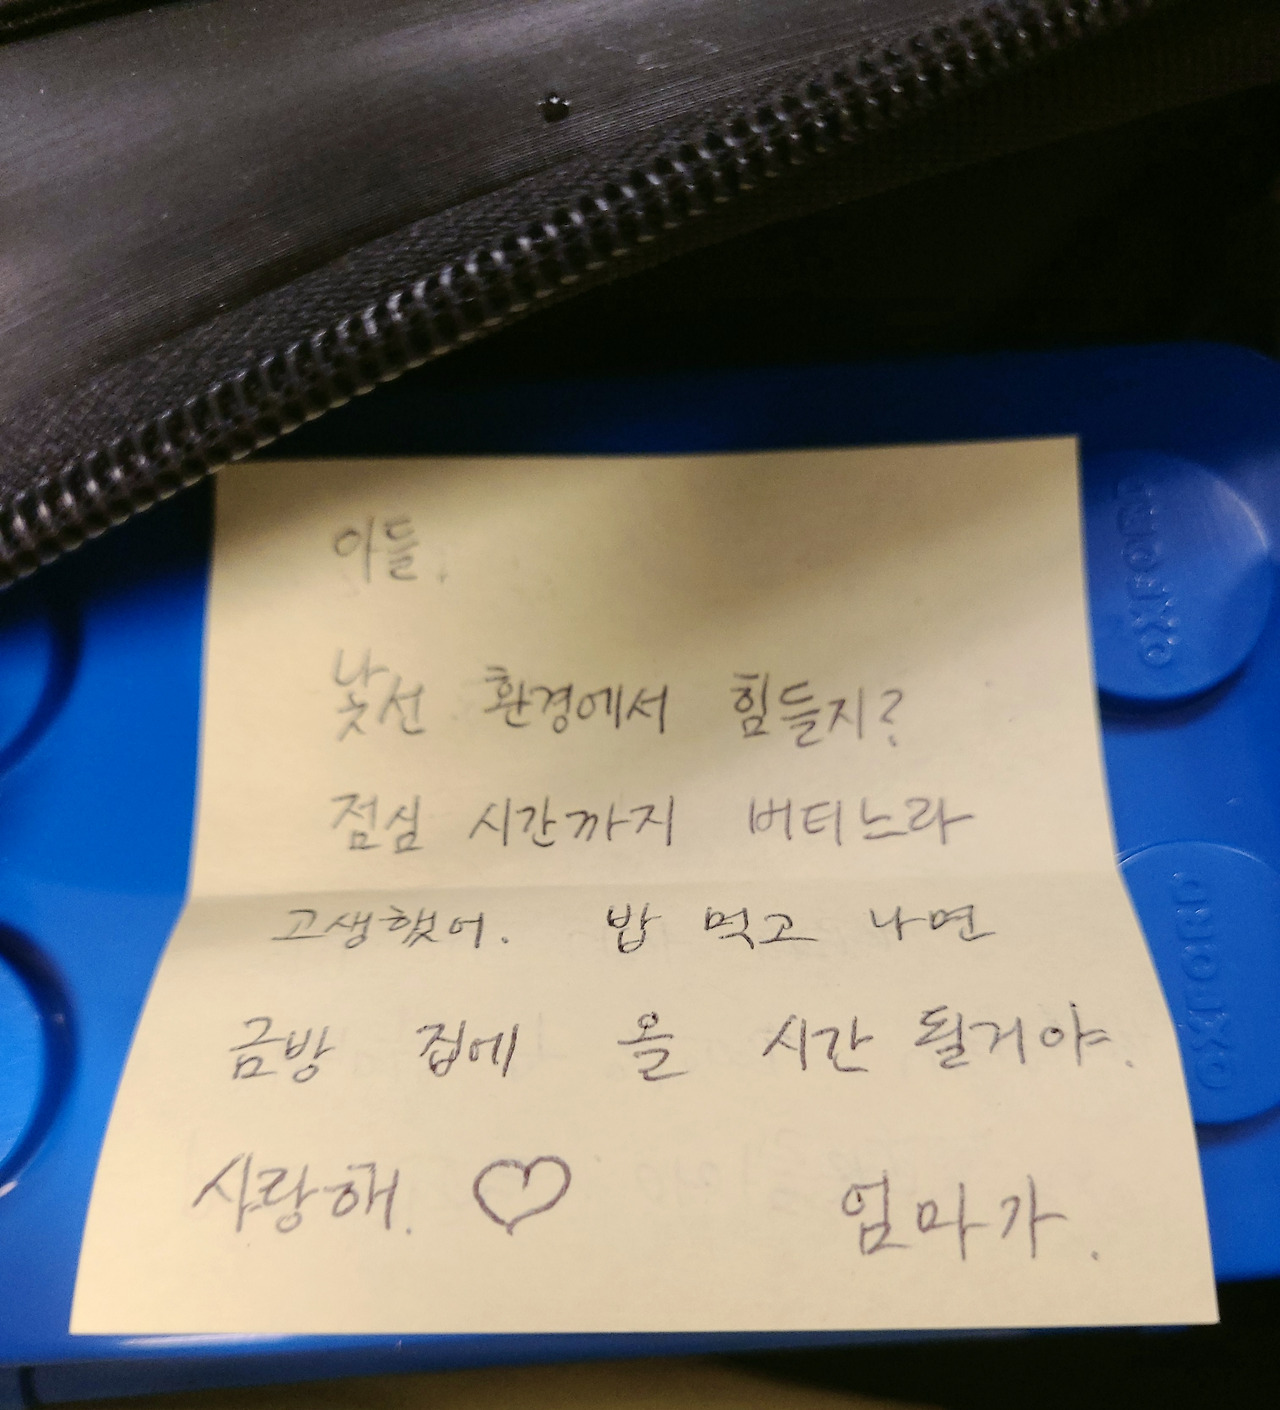 아들.
낯선 환경에서 힘들지?
점심 시간까지 버티느라
고생했어. 밥 먹고 나면
금방 집에 올 시간 될거야.
사랑해. ♡ 엄마가.
OXFORD
OXFORD